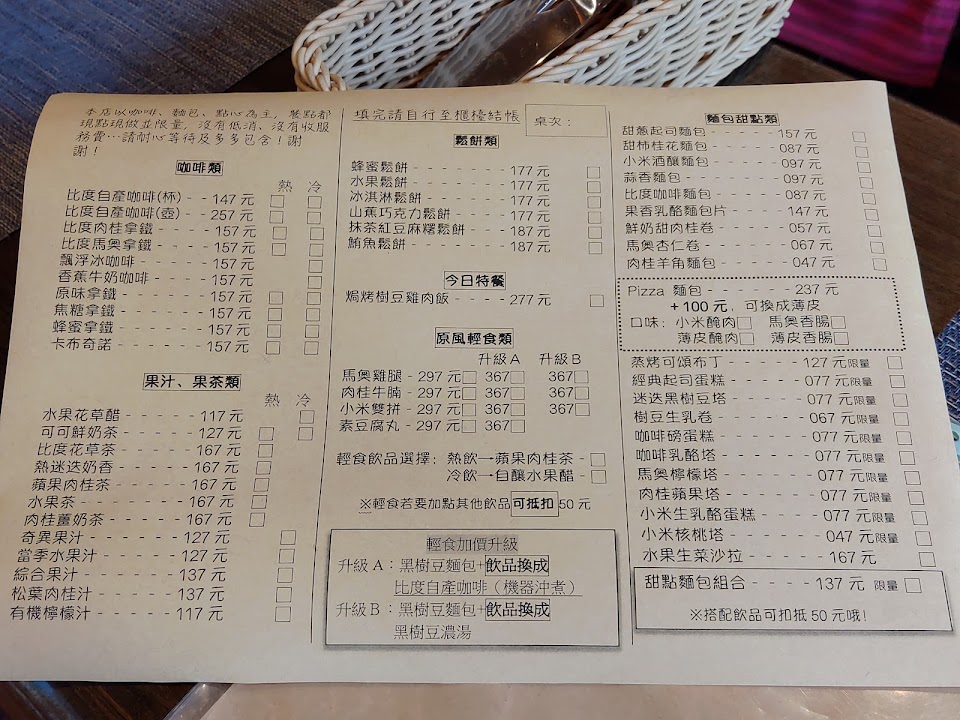 本店以咖啡、麵包、點心為主，餐點都
現點現做並限量，沒有低消、沒有收服
務費…請耐心等待及多多包含！謝
謝！
咖啡類
熱 冷
比度自產咖啡(杯) - - 147 元 □ □
比度自產咖啡(壺) - - 257 元 □ □
比度肉桂拿鐵 - - - - - 157 元 □ □
比度馬奧拿鐵 - - - - - 157 元 □ □
飄浮冰咖啡 - - - - - - 157 元 □
香蕉牛奶咖啡 - - - - - 157 元 □
原味拿鐵 - - - - - - - 157 元 □ □
焦糖拿鐵 - - - - - - - 157 元 □ □
蜂蜜拿鐵 - - - - - - - 157 元 □ □
卡布奇諾 - - - - - - - 157 元 □ □
果汁、果茶類
熱 冷
水果花草醋 - - - - - - 117 元 □
可可鮮奶茶 - - - - - - 127 元 □ □
比度花草茶 - - - - - - 167 元 □
熱迷迭奶香 - - - - - - 167 元 □
蘋果肉桂茶 - - - - - - 167 元 □
水果茶 - - - - - - - - 167 元 □
肉桂薑奶茶 - - - - - - 167 元 □
奇異果汁 - - - - - - - 127 元 □
當季水果汁 - - - - - - 127 元 □
綜合果汁 - - - - - - - 137 元 □
松葉肉桂汁 - - - - - - 137 元 □
有機檸檬汁 - - - - - - 117 元 □
填完請自行至櫃檯結帳 桌次：
鬆餅類
蜂蜜鬆餅 - - - - - - - 177 元 □
水果鬆餅 - - - - - - - 177 元 □
冰淇淋鬆餅 - - - - - - 177 元 □
山蕉巧克力鬆餅 - - - - 177 元 □
抹茶紅豆麻糬鬆餅 - - - 187 元 □
鮪魚鬆餅 - - - - - - - 187 元 □
今日特餐
焗烤樹豆雞肉飯 - - - - 277 元 □
原風輕食類
升級A 升級B
馬奧雞腿 - 297 元□ 367□ 367□
肉桂牛腩 - 297 元□ 367□ 367□
小米雙拼 - 297 元□ 367□ 367□
素豆腐丸 - 297 元□ 367□
輕食飲品選擇：熱飲－蘋果肉桂茶 - □
冷飲－自釀水果醋 - □
※輕食若要加點其他飲品可抵扣50元
輕食加價升級
升級 A：黑樹豆麵包+飲品換成
比度自產咖啡（機器沖煮）
升級 B：黑樹豆麵包+飲品換成
黑樹豆濃湯
麵包甜點類
甜蔥起司麵包 - - - - - 157 元 □
甜柿桂花麵包 - - - - - 087 元 □
小米酒釀麵包 - - - - - 097 元 □
蒜香麵包 - - - - - - - 097 元 □
比度咖啡麵包 - - - - - 087 元 □
果香乳酪麵包片 - - - - 147 元 □
鮮奶甜肉桂卷 - - - - - 057 元 □
馬奧杏仁卷 - - - - - - 067 元 □
肉桂羊角麵包 - - - - - 047 元 □
Pizza 麵包 - - - - - - 237 元
+ 100 元，可換成薄皮
口味：小米醃肉□ 馬奧香腸□
薄皮醃肉□ 薄皮香腸□
蒸烤可頌布丁 - - - - - 127 元限量 □
經典起司蛋糕 - - - - - 077 元限量 □
迷迭黑樹豆塔 - - - - - 077 元限量 □
樹豆生乳卷 - - - - - - 067 元限量 □
咖啡磅蛋糕 - - - - - - 077 元限量 □
咖啡乳酪塔 - - - - - - 077 元限量 □
馬奧檸檬塔 - - - - - - 077 元限量 □
肉桂蘋果塔 - - - - - - 077 元限量 □
小米生乳酪蛋糕 - - - - 077 元限量 □
小米核桃塔 - - - - - - 047 元限量 □
水果生菜沙拉 - - - - - 167 元 □
甜點麵包組合 - - - - - 137 元 限量 □
※搭配飲品可扣抵 50 元哦！